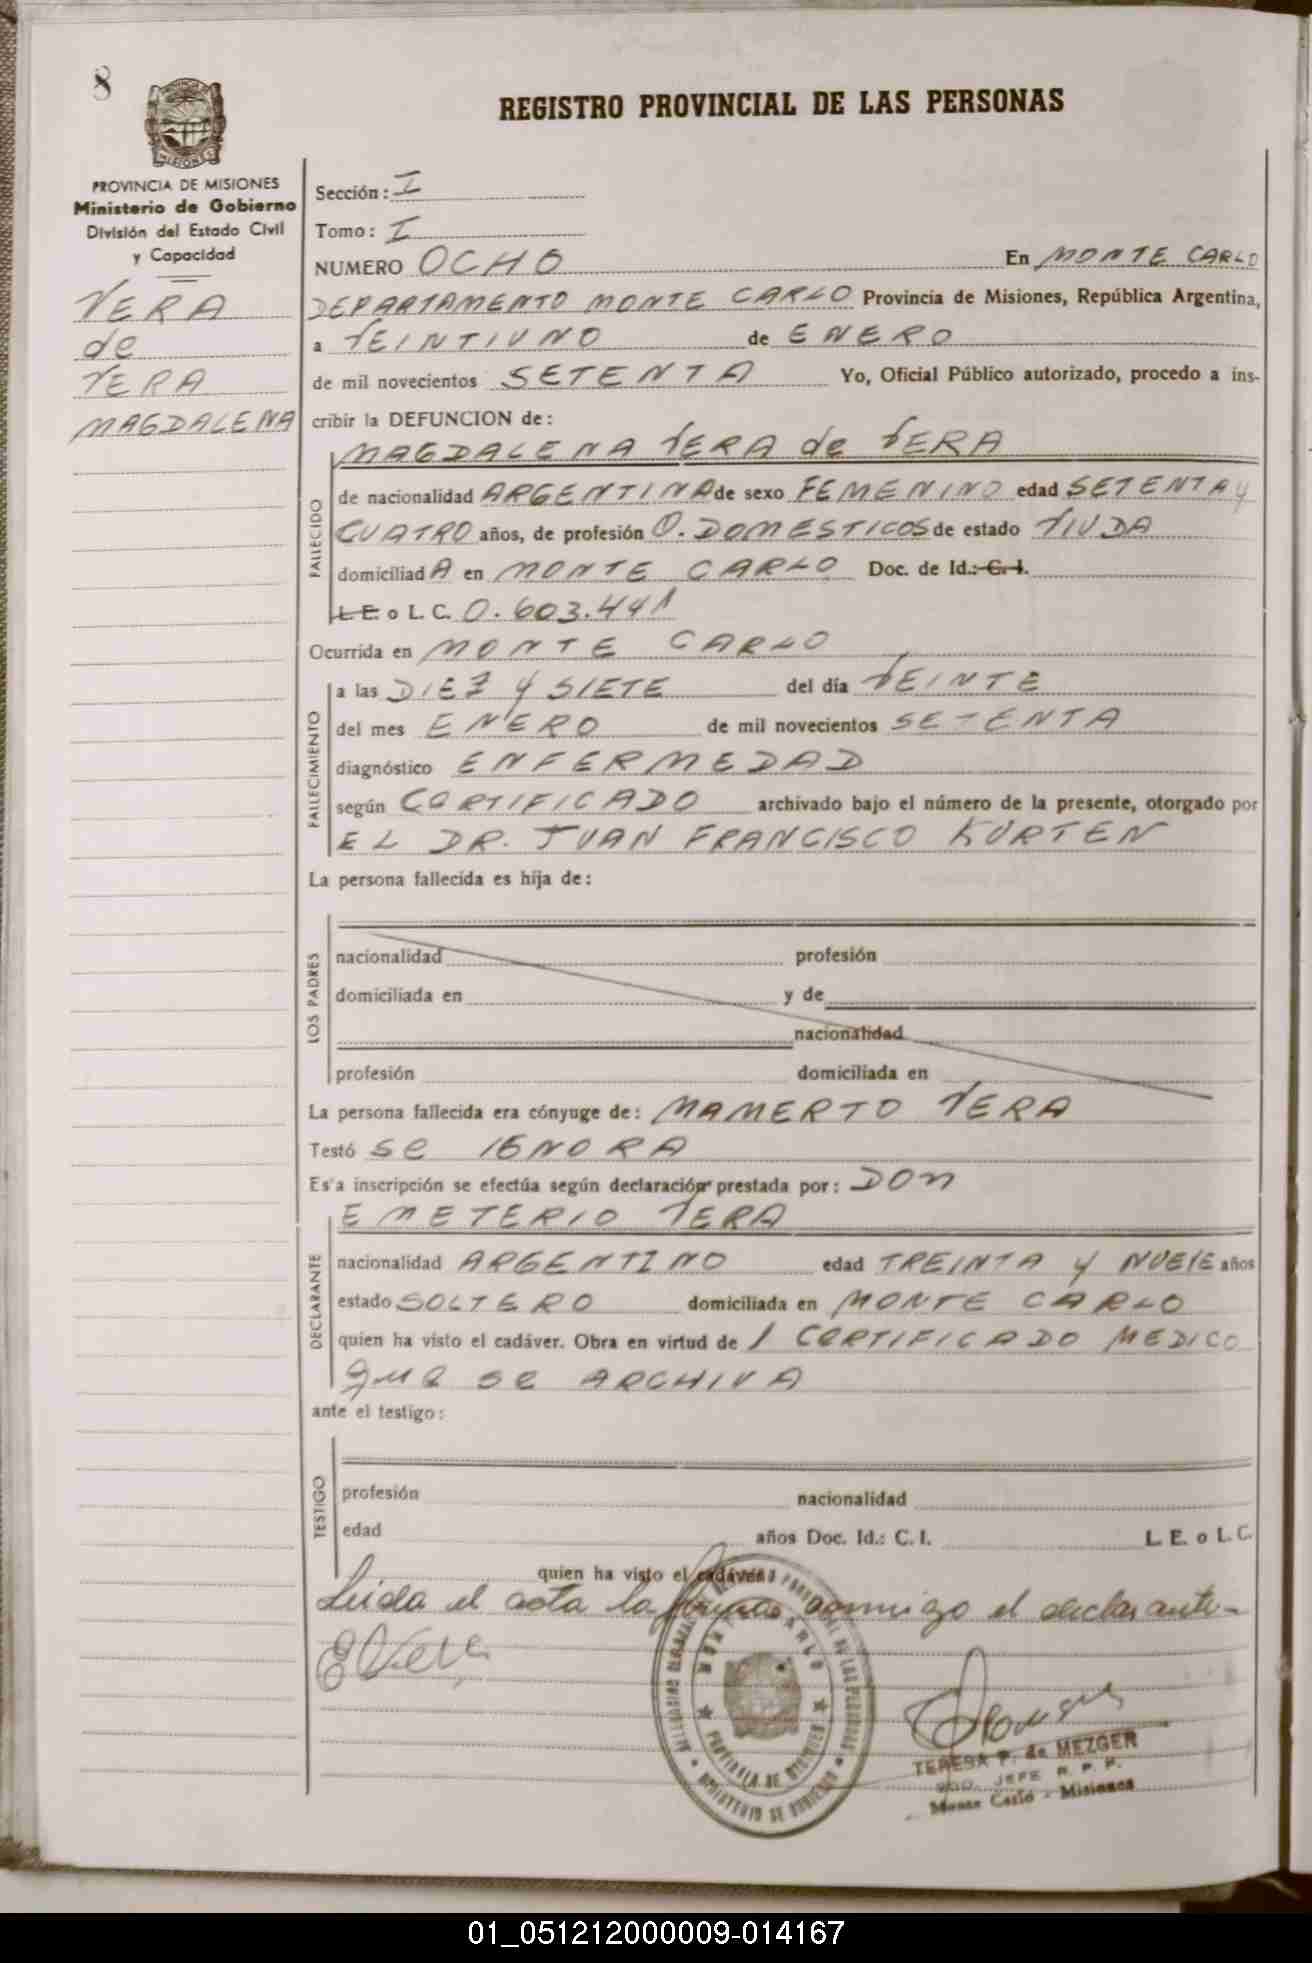 8
REGISTRO PROVINCIAL DE LAS PERSONAS
PROVINCIA DE MISIONES
Ministerio de Gobierno
División del Estado Civil
y Capacidad
VERA
de
VERA
MAGDALENA
Sección: I
Tomo: I
NUMERO OCHO En MONTE CARLO
DEPARTAMENTO MONTE CARLO Provincia de Misiones, República Argentina,
a VEINTIUNO de ENERO
de mil novecientos SETENTA Yo, Oficial Público autorizado, procedo a ins-
cribir la DEFUNCION de:
MAGDALENA VERA de VERA
FALLECIDO
de nacionalidad ARGENTINA de sexo FEMENINO edad SETENTA y
CUATRO años, de profesión Q. DOMESTICOS de estado VIUDA
domiciliadA en MONTE CARLO Doc. de Id.: C. I.
L.E. o L. C. 0.603.441
Ocurrida en MONTE CARLO
FALLECIMIENTO
a las DIEZ Y SIETE del día VEINTE
del mes ENERO de mil novecientos SETENTA
diagnóstico ENFERMEDAD
según CERTIFICADO archivado bajo el número de la presente, otorgado por
EL DR. JUAN FRANCISCO KURTEN
La persona fallecida es hija de:
LOS PADRES
nacionalidad profesión
domiciliada en y de
nacionalidad
profesión domiciliada en
La persona fallecida era cónyuge de: MAMERTO VERA
Testó se IGNORA
Es'a inscripción se efectúa según declaración prestada por: DON
EMETERIO VERA
DECLARANTE
nacionalidad ARGENTINO edad TREINTA Y NUEVE años
estado SOLTERO domiciliada en MONTE CARLO
quien ha visto el cadáver. Obra en virtud de 1 CERTIFICADO MEDICO
que se ARCHIVA
ante el testigo:
TESTIGO
profesión nacionalidad
edad años Doc. Id.: C. I. L. E. o L. C.
quien ha visto el cadáver.
Leida el acta la firma conmigo el declarante-
E Vera
MONTE CARLO
PROVINCIA DE MISIONES
MINISTERIO DE GOBIERNO
TERESA P. de MEZGER
JEFE R. P. P.
Monte Carlo - Misiones
01_051212000009-014167